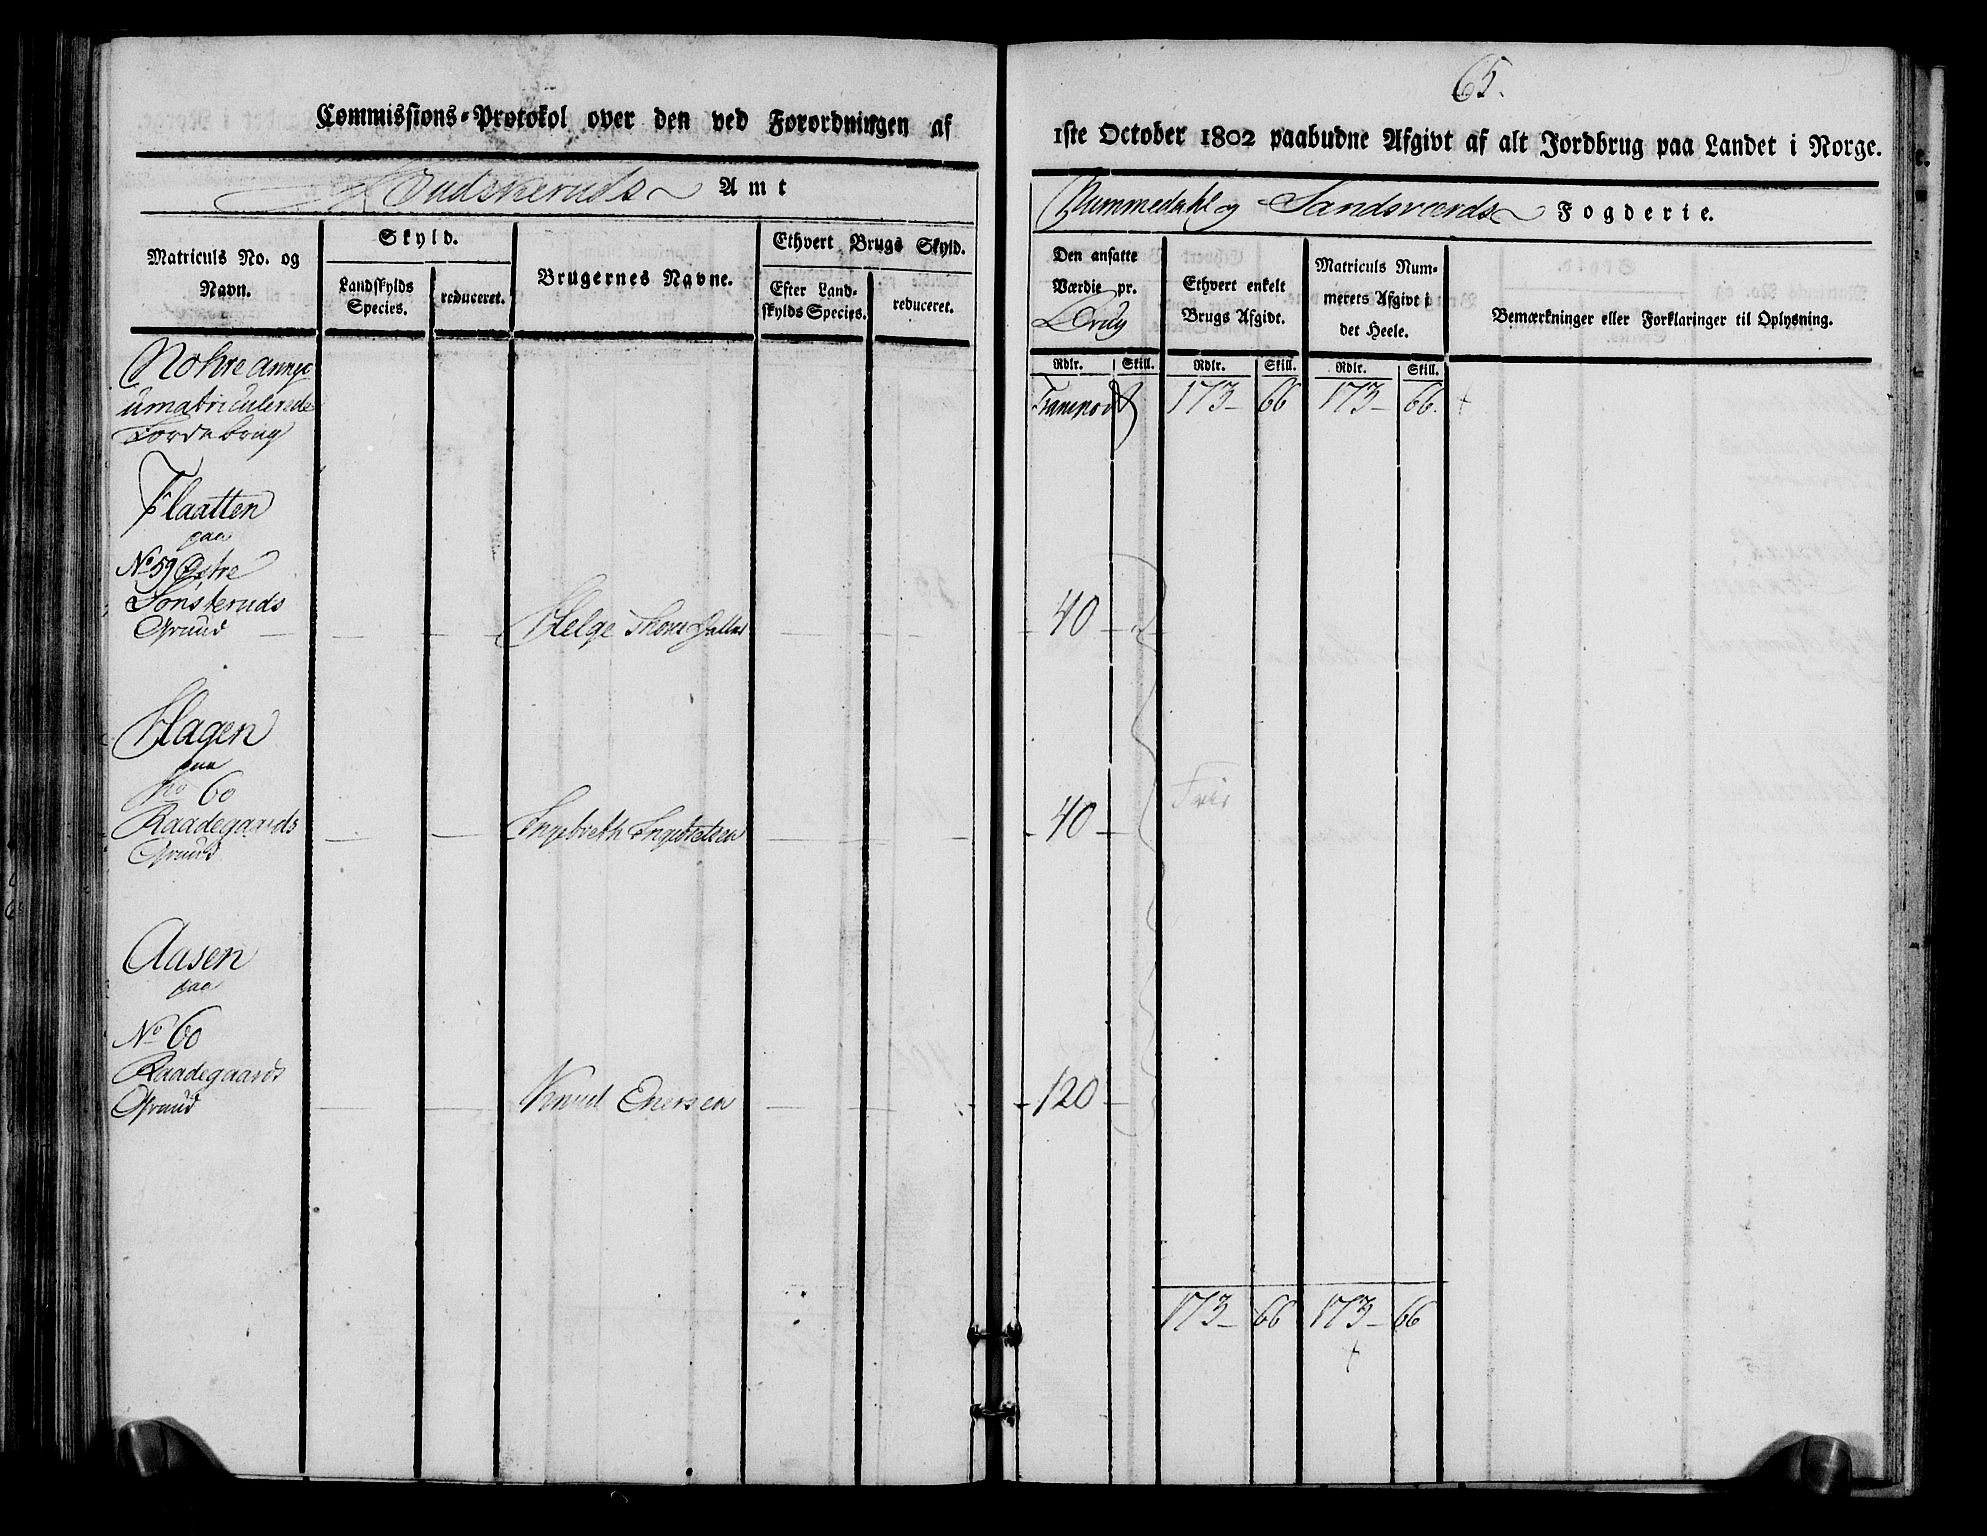 65.
Commissions-Protokol over den ved Forordningen af
1ste October 1802 paabudne Afgivt af alt Jordbrug paa Landet i Norge.
Budskeruds Amt
Nummedahl og Sandsværds Fogderie.
Matriculs No. og Navn.
Skyld.
Landskylds Species.
reduceret.
Brugernes Navne.
Ethvert Brugs Skyld.
Efter Landskylds Species.
reduceret.
Den ansatte Værdie pr. Brug
Ethvert enkelt Brugs Afgivt.
Matriculs Nummerets Afgivt i det Heele.
Bemærkninger eller Forklaringer til Oplysning.
Rdlr. Skill. Rdlr. Skill. Rdlr. Skill.
Transport 173 66 173 66.
umatriculerede
Jordebrug
Flaatten
paa
No 59 Østre
Sønsteruds
Grund Helge 40
Hagen
paa
No 60
Raadegaards
Grund Ingebreth Ingebretsen 40 Frie
Aasen
paa
No 60
Raadegaards
Grund Knud Enersen 120
173 66 173 66